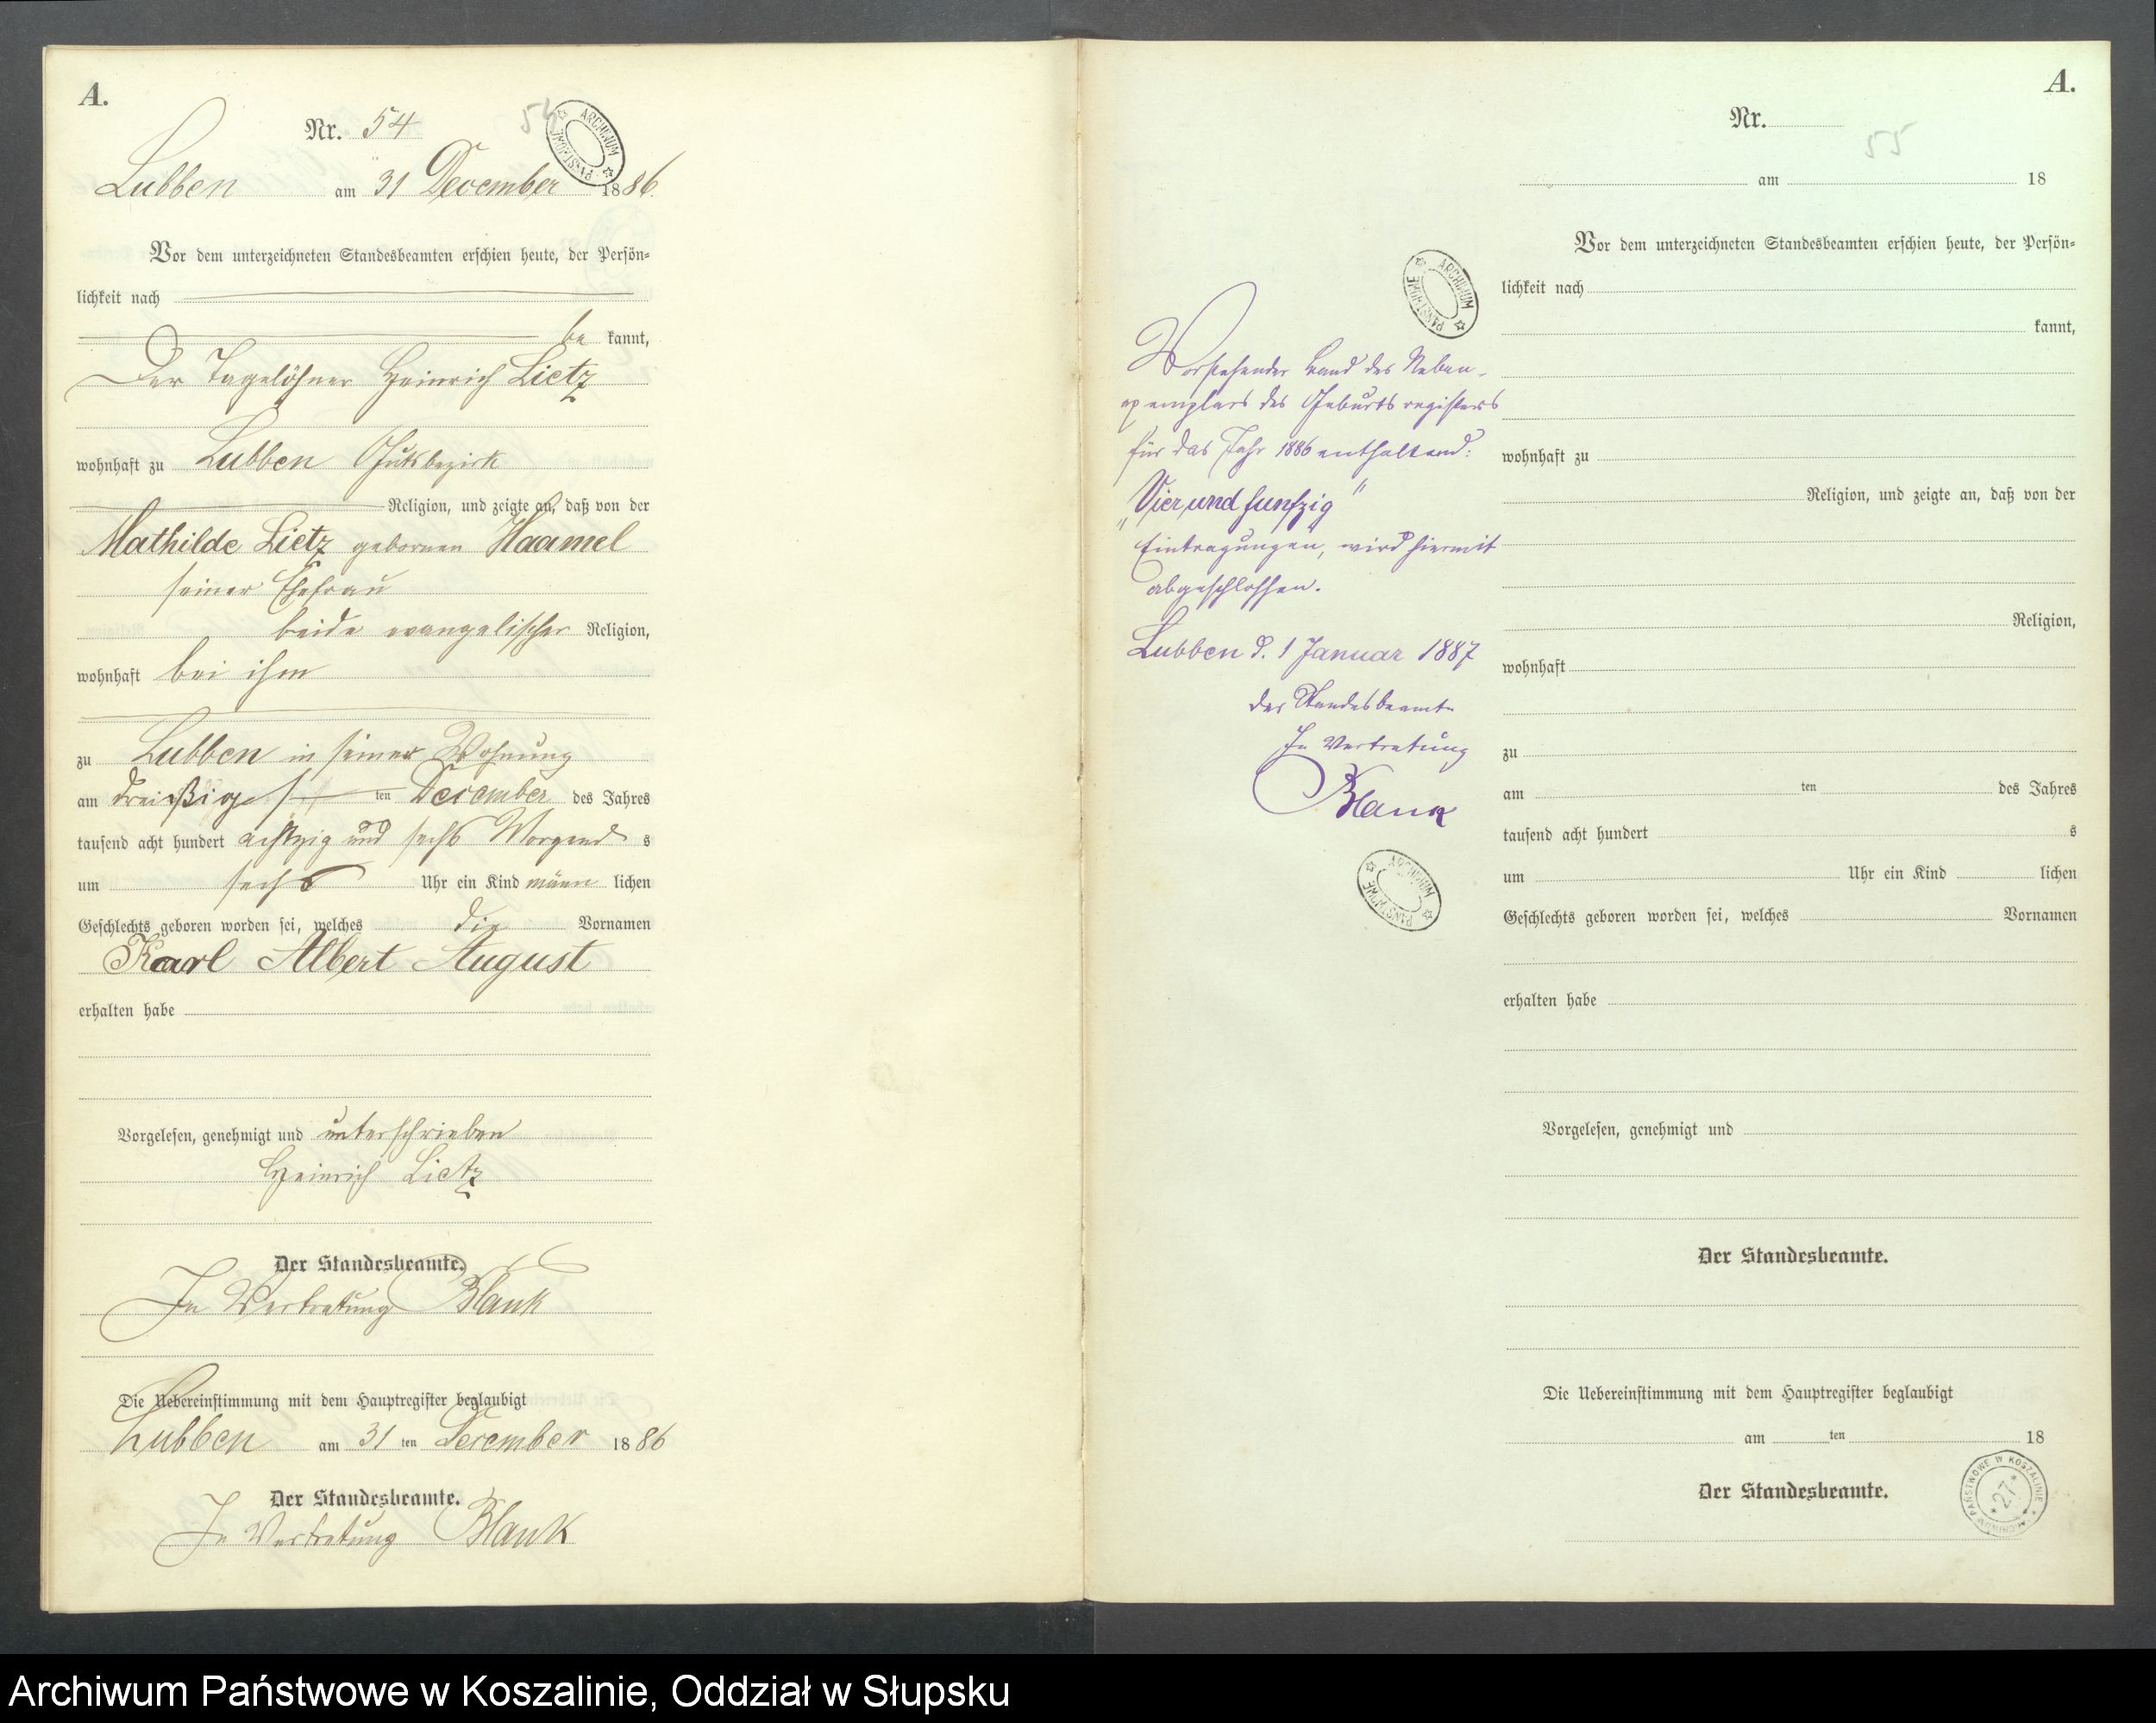 A.
Nr. 54
54
ARCHIWUM PAŃSTWOWE
Lubben am 31 December 1886.
Vor dem unterzeichneten Standesbeamten erschien heute, der Persön-
lichkeit nach
be kannt,
Der Tagelöhner Heinrich Lietz
wohnhaft zu Lubben Gutsbezirk
Religion, und zeigte an, daß von der
Mathilde Lietz gebornen Haamel
seiner Ehefrau
beide evangelischer Religion,
wohnhaft bei ihm
zu Lubben in seiner Wohnung
am dreißigst ten December des Jahres
tausend acht hundert achtzig und sechs Morgend s
um sechs Uhr ein Kind männ lichen
Geschlechts geboren worden sei, welches die Vornamen
Karl Albert August
erhalten habe
Vorgelesen, genehmigt und unterschrieben
Heinrich Lietz
Der Standesbeamte.
In Vertretung Blank
Die Uebereinstimmung mit dem Hauptregister beglaubigt
Lubben am 31 ten December 1886
Der Standesbeamte.
In Vertretung Blank
ARCHIWUM PAŃSTWOWE
Vorstehender Band des Neben-
exemplars des Geburtsregisters
für das Jahr 1886 enthaltend:
„Vier und funfzig"
Eintragungen, wird hiermit
abgeschlossen.
Lubben d. 1 Januar 1887
der Standesbeamte
In Vertretung
Blank
ARCHIWUM PAŃSTWOWE
A.
Nr.
55
am 18
Vor dem unterzeichneten Standesbeamten erschien heute, der Persön-
lichkeit nach
kannt,
wohnhaft zu
Religion, und zeigte an, daß von der
Religion,
wohnhaft
zu
am ten des Jahres
tausend acht hundert s
um Uhr ein Kind lichen
Geschlechts geboren worden sei, welches Vornamen
erhalten habe
Vorgelesen, genehmigt und
Der Standesbeamte.
Die Uebereinstimmung mit dem Hauptregister beglaubigt
am ten 18
Der Standesbeamte.
ARCHIWUM PAŃSTWOWE W KOSZALINIE
*27*
Archiwum Państwowe w Koszalinie, Oddział w Słupsku